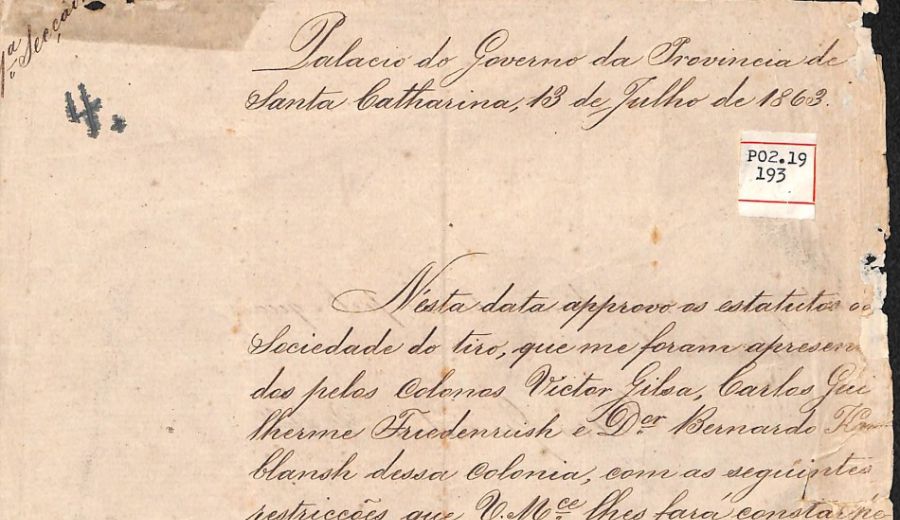 1ª Secção
4.
Palacio do Governo da Provincia de
Santa Catharina, 13 de Julho de 1863.
P02.19
193
Nesta data approvo os estatutos
Sociedade do tiro, que me foram apresen
dos pelos colonos Victor Gilsa, Carlos Gui
lherme Friedenrush e Dor. Bernardo
blansh dessa colonia, com as seguintes
restricções que V.Mce. lhes fará constar